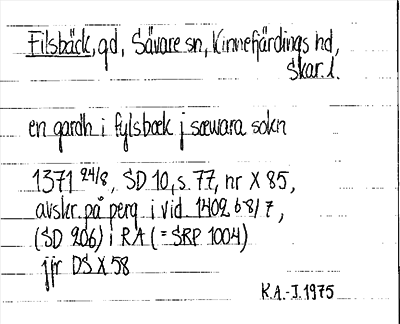 Filsbäck, gd, Sävare sn, Kinnefjärdings hd,
Skar. l.
en gardh i fylsbæk j sæwara sokn
1371 24/8, SD 10, s. 77, nr X 85,
avskr. på perg i vid. 1402 6-8/7,
(SD 206) i RA (= SRP 1004)
jfr DS X 58
K.A.-I. 1975